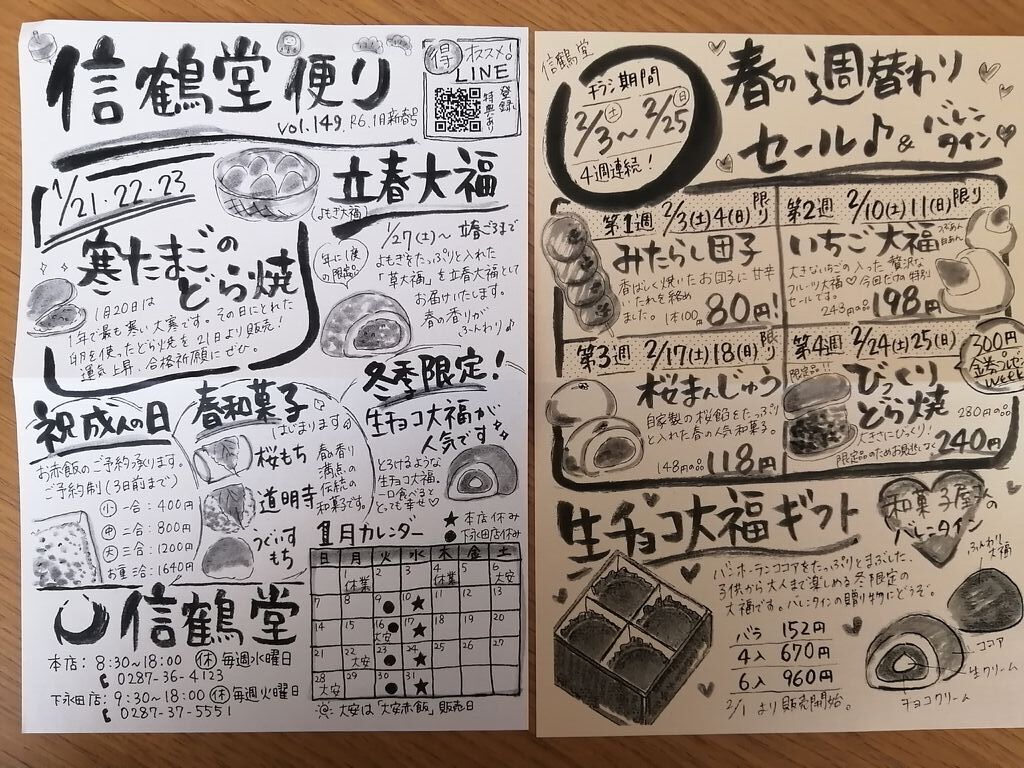 信鶴堂便り
vol.149. R6.1月新春号
得 オススメ!
LINE
登録
特典あり
1/21.22.23
寒たまごの
どら焼
1月20日は
1年で最も寒い大寒です。その日にとれた
卵を使ったどら焼を21日より販売!
運気上昇、合格祈願にぜひ。
立春大福
(よもぎ大福)
年に1度
の限定品
1/27(土)~立春ごろまで
よもぎをたっぷりと入れた
「草大福」を立春大福として
お届けいたします。
春の香りが
ふんわり♪
祝成人の日
お赤飯のご予約承ります。
ご予約制(3日前まで)
小 一合:400円
中 二合:800円
大 三合:1200円
お重 三合:1640円
春和菓子
はじまります
桜もち
道明寺
うぐいす
もち
春の香り
満点の
伝統の
和菓子です。
冬季限定!
生チョコ大福が
人気です
とろけるような
生チョコ大福。
一口食べると
とっても幸せ♡
1月カレンダー
★本店休み
●下永田店休み
日 月 火 水 木 金 土
1 休業 2 3 4 休業 5 6 大安
7 8 9 ● 10 ★ 11 12 13
14 15 16 大安 ● 17 ★ 18 19 20
21 22 大安 23 ● 24 ★ 25 26 27
28 大安 29 30 ● 31 ★
※大安は「大安赤飯」販売日
信鶴堂
本店:8:30~18:00 休 毎週水曜日
0287-36-4123
下永田店:9:30~18:00 休 毎週火曜日
0287-37-5551
信鶴堂
チラシ期間
2/3(土)~2/25(日)
4週連続!
春の週替わり
セール♪&バレンタイン
第1週 2/3(土)4(日)限り
みたらし団子
香ばしく焼いたお団子に甘辛
いたれを絡め
ました。1本100円 80円!
第2週 2/10(土)11(日)限り
いちご大福
つぶあん
白あん
大きないちごの入った贅沢な
フルーツ大福♡今回だけの特別
セールです。
243円の品 198円
第3週 2/17(土)18(日)限り
桜まんじゅう
自家製の桜餡をたっぷり
と入れた春の人気和菓子。
148円の品 118円
第4週 2/24(土)25(日)
300円
金券プレゼント
Week
限定品!!
びっくり
どら焼
大きさにびっくり! 280円の品
限定品のためお早めに 240円
生チョコ大福ギフト
和菓子屋さんの
バレンタイン
バンホーテンココアをたっぷりとまぶした、
子供から大人まで楽しめる冬限定の
大福です。バレンタインの贈り物にどうぞ。
バラ 152円
4入 670円
6入 960円
2/1より販売開始。
ふんわり
大福
ココア
生クリーム
チョコクリーム